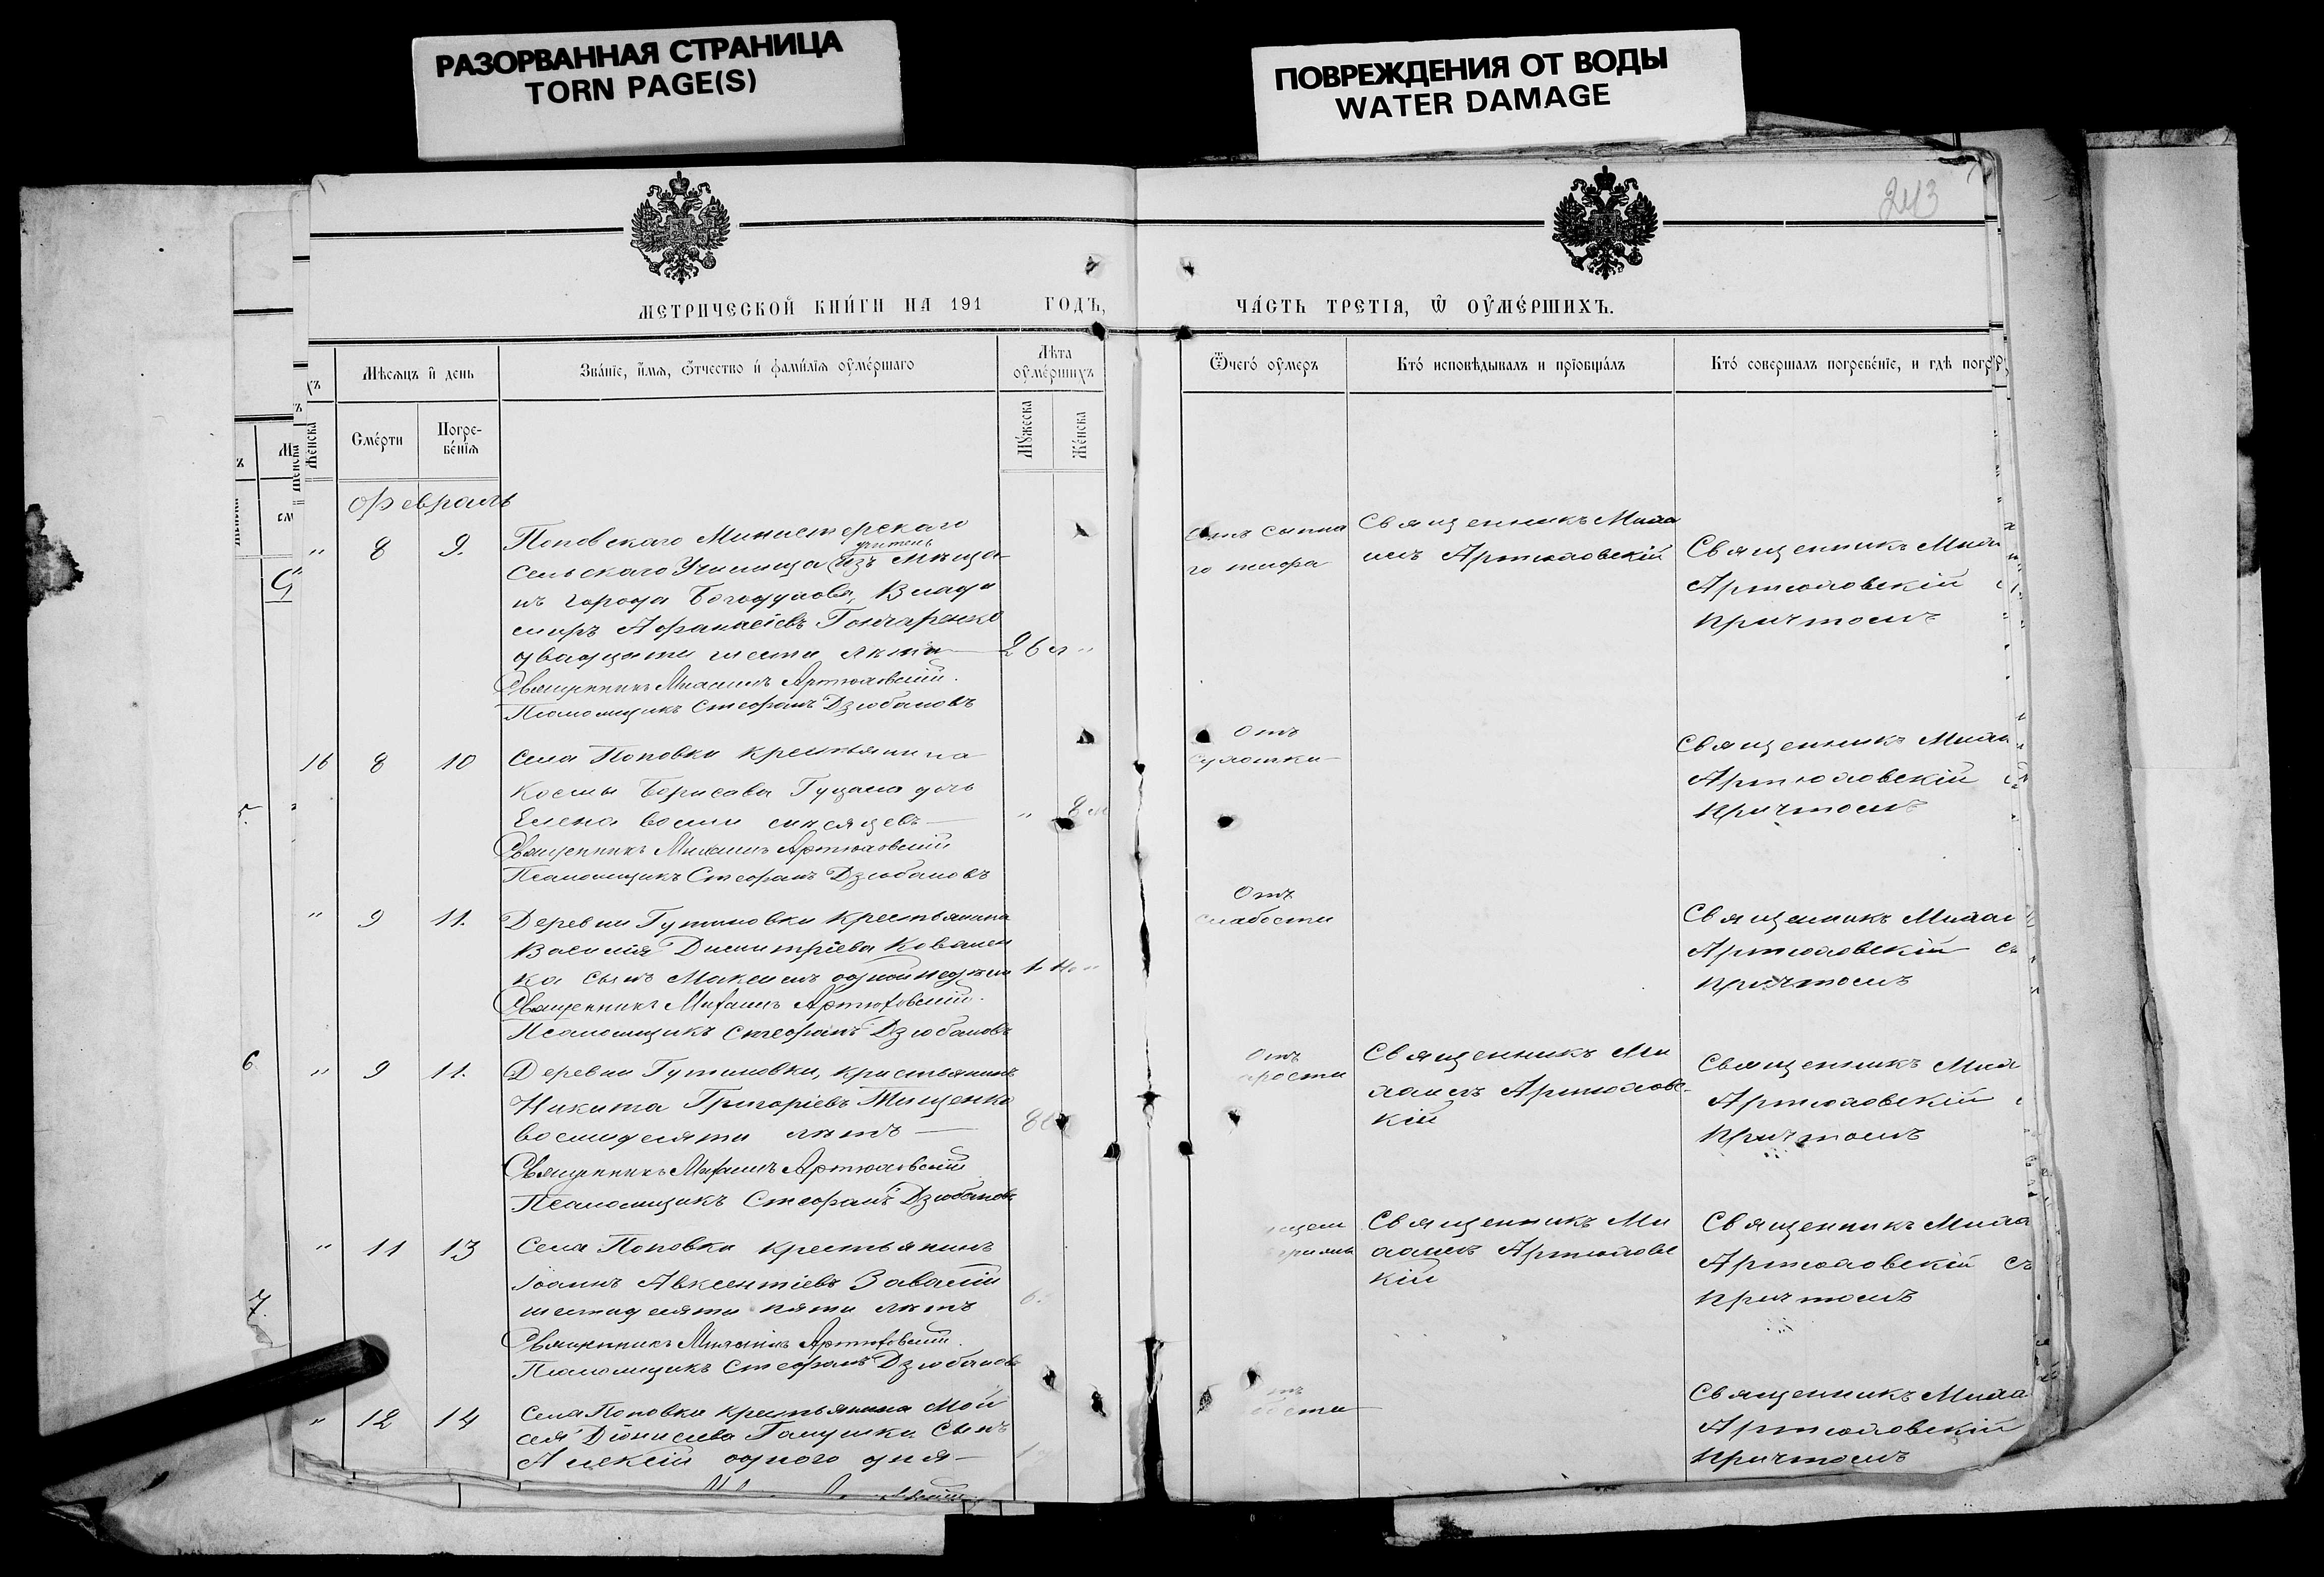 РАЗОРВАННАЯ СТРАНИЦА
TORN PAGE(S)
ПОВРЕЖДЕНИЯ ОТ ВОДЫ
WATER DAMAGE
243
МЕТРИЧЕСКОЙ КНИ́ГИ НА 191 ГОДЪ,
ЧА́СТЬ ТРЕТІЯ, Ѿ ОУМЕ́РШИХЪ.
Мѣсяцъ и день
Зва́ніе, и́мя, ѻ́тчество и фами́лія оуме́ршаго
Лѣта оуме́ршихъ
Женска
Сме́рти
Погре-
бе́нія
Мꙋжеска
Же́нска
Ѿчего́ оумеръ
Кто́ исповѣдывалъ и прїобща́лъ
Кто́ совершалъ погребе́ніе, и гдѣ погр
Февраль
" 8 9.
Поповскаго Министерскаго
учитель
Сельскаго Училища изъ мѣща-
нъ города Богодухова, Влади
миръ Афанасіевъ Гончаренко
двадцати шести лѣтъ 26 л "
Священникъ Михаилъ Артюховскій.
Псаломщикъ Стефанъ Дзюбановъ
Отъ сыпна
го тифа
Священникъ Миха
илъ Артюховскій
Священникъ Миха
Артюховскій
причтомъ
16 8 10
Села Поповки крестьянина
Космы Борисова Гуцала дочь
Елена восьми мѣсяцевъ " 8 м
Священникъ Михаилъ Артюховскій
Псаломщикъ Стефанъ Дзюбановъ
Отъ
сухотки
Священникъ Миха
Артюховскій
причтомъ
" 9 11.
Деревни Гутыровки крестьянина
Василія Димитріева Ковален
ка сынъ Максимъ одной недѣли 1 н "
Священникъ Михаилъ Артюховскій.
Псаломщикъ Стефанъ Дзюбановъ
Отъ
слабости
Священникъ Михаи
Артюховскій съ
причтомъ
6
" 9 11.
Деревни Гутыровки, крестьянинъ
Никита Григоріевъ Тищенко
восьмидесяти лѣтъ 80
Священникъ Михаилъ Артюховскій
Псаломщикъ Стефанъ Дзюбановъ
Отъ
арости
Священникъ Ми
хаилъ Артюховс-
кій
Священникъ Миха
Артюховскій
причтомъ
7.
" 11 13
Села Поповки крестьянинъ
Іоаннъ Авксентіевъ Завалій
шестидесяти пяти лѣтъ 6
Священникъ Михаилъ Артюховскій.
Псаломщикъ Стефанъ Дзюбановъ
Священникъ Ми
хаилъ Артюховс
кій
Священникъ Миха
Артюховскій съ
причтомъ
" 12 14
Села Поповки крестьянина Мой
сея Діонисіева Галушки сынъ
Алексій одного дня 1
Священникъ Миха
Артюховскій
причтомъ